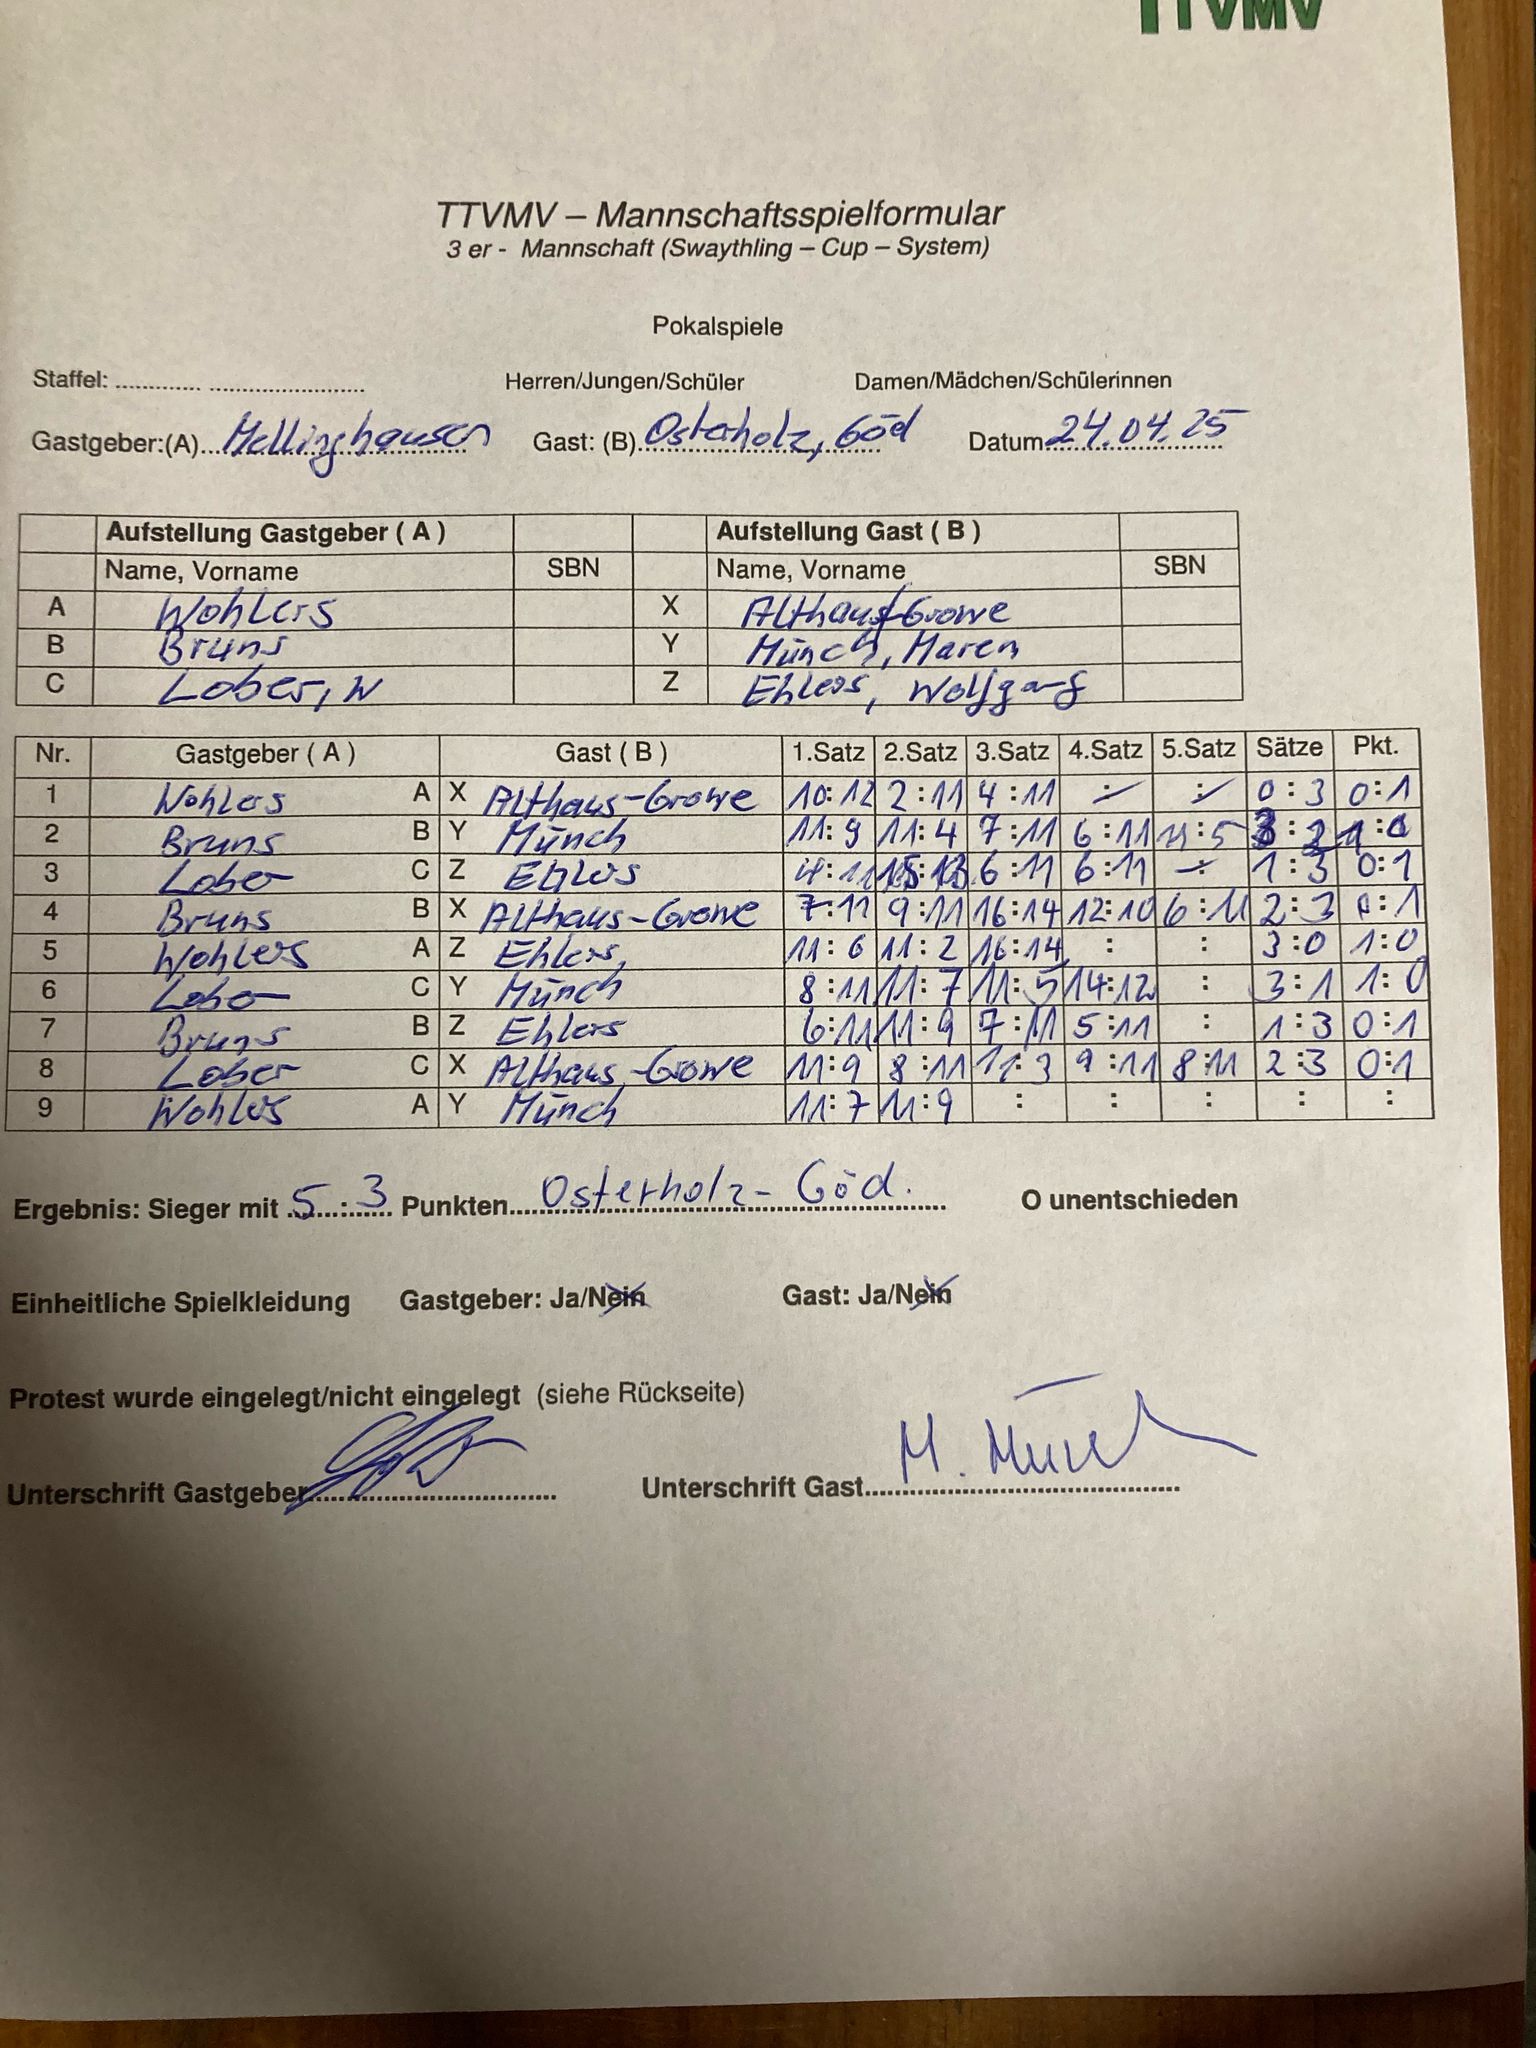 TTVMV
TTVMV – Mannschaftsspielformular
3 er - Mannschaft (Swaythling – Cup – System)
Pokalspiele
Staffel: ............. ....................... Herren/Jungen/Schüler Damen/Mädchen/Schülerinnen
Gastgeber:(A) Mellinghausen Gast: (B) Osterholz, Göd Datum 24.04.25
Aufstellung Gastgeber ( A ) Aufstellung Gast ( B )
Name, Vorname SBN Name, Vorname SBN
A Wohlers X Althaus-Growe
B Bruns Y Münch, Maren
C Lober, W Z Ehlers, Wolfgang
Nr. Gastgeber ( A ) Gast ( B ) 1.Satz 2.Satz 3.Satz 4.Satz 5.Satz Sätze Pkt.
1 Wohlers A X Althaus-Growe 10:12 2:11 4:11 : : 0:3 0:1
2 Bruns B Y Münch 11:9 11:4 7:11 6:11 11:5 3:2 1:0
3 Lober C Z Ehlers 4:11 15:13 6:11 6:11 : 1:3 0:1
4 Bruns B X Althaus-Growe 7:11 9:11 16:14 12:10 6:11 2:3 0:1
5 Wohlers A Z Ehlers, 11:6 11:2 16:14 : : 3:0 1:0
6 Lober C Y Münch 8:11 11:7 11:5 14:12 : 3:1 1:0
7 Bruns B Z Ehlers 6:11 11:9 7:11 5:11 : 1:3 0:1
8 Lober C X Althaus-Growe 11:9 8:11 11:3 9:11 8:11 2:3 0:1
9 Wohlers A Y Münch 11:7 11:9 : : : : :
Ergebnis: Sieger mit 5:3 Punkten Osterholz-Göd. O unentschieden
Einheitliche Spielkleidung Gastgeber: Ja/Nein Gast: Ja/Nein
Protest wurde eingelegt/nicht eingelegt (siehe Rückseite)
Unterschrift Gastgeber Unterschrift Gast M. Münch